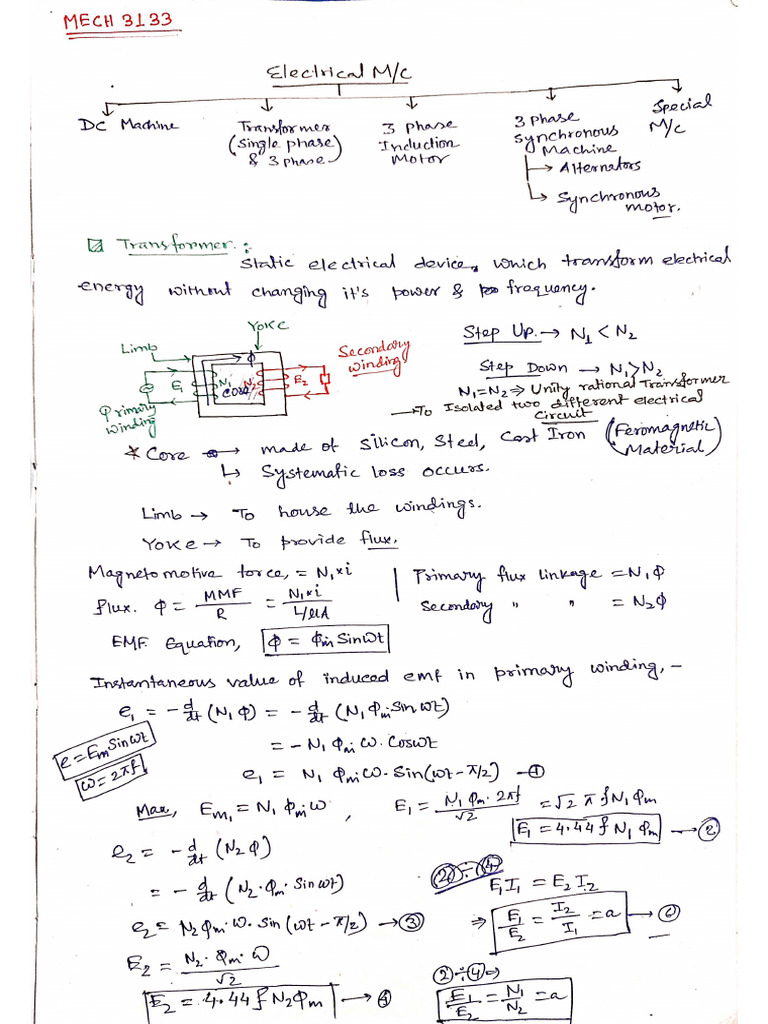 MECH 3133
Electrical M/c
DC Machine
Transformer
(single phase)
& 3 phase
3 Phase
Induction
Motor
3 Phase
Synchronous
Machine
→ Alternators
→ Synchronous
motor.
Special
M/c
Transformer :
Static electrical device, which transform electrical
energy without changing it's power & frequency.
Limb
Yoke
Φ
Secondary
winding
E₁
N₁
N₂
E₂
Core
Primary
winding
Step Up. → N₁ < N₂
Step Down → N₁ > N₂
N₁=N₂ ⇒ Unity rational Transformer
→ To Isolated two different electrical
circuit
* Core → made of Silicon, Steel, Cast Iron (Feromagnetic Material)
↳ Systematic loss occurs.
Limb → To house the windings.
Yoke → To provide flux.
Magneto motive force, = N₁×i
flux. Φ = MMF/R = N₁×i / L/μA
Primary flux linkage = N₁Φ
Secondary " " = N₂Φ
EMF Equation, Φ = Φm Sinωt
Instantaneous value of induced emf in primary winding, –
e₁ = - d/dt (N₁Φ) = - d/dt (N₁Φm Sin ωt)
= - N₁ Φm ω. Cosωt
e = Em Sinωt
ω = 2πf
e₁ = N₁ Φm ω. Sin(ωt - π/2) – ①
Max, Em₁ = N₁ Φm ω , E₁ = N₁ Φm. 2πf / √2 = √2 π f N₁ Φm
E₁ = 4.44 f N₁ Φm → ②
e₂ = - d/dt (N₂Φ)
= - d/dt (N₂. Φm. Sin ωt)
e₂ = N₂ Φm. ω. Sin (ωt - π/2) → ③
E₂ = N₂. Φm. ω / √2
E₂ = 4.44 f N₂ Φm → ④
② ÷ ④
E₁I₁ = E₂I₂
⇒ E₁/E₂ = I₂/I₁ = a
② ÷ ④ ⇒
E₁/E₂ = N₁/N₂ = a